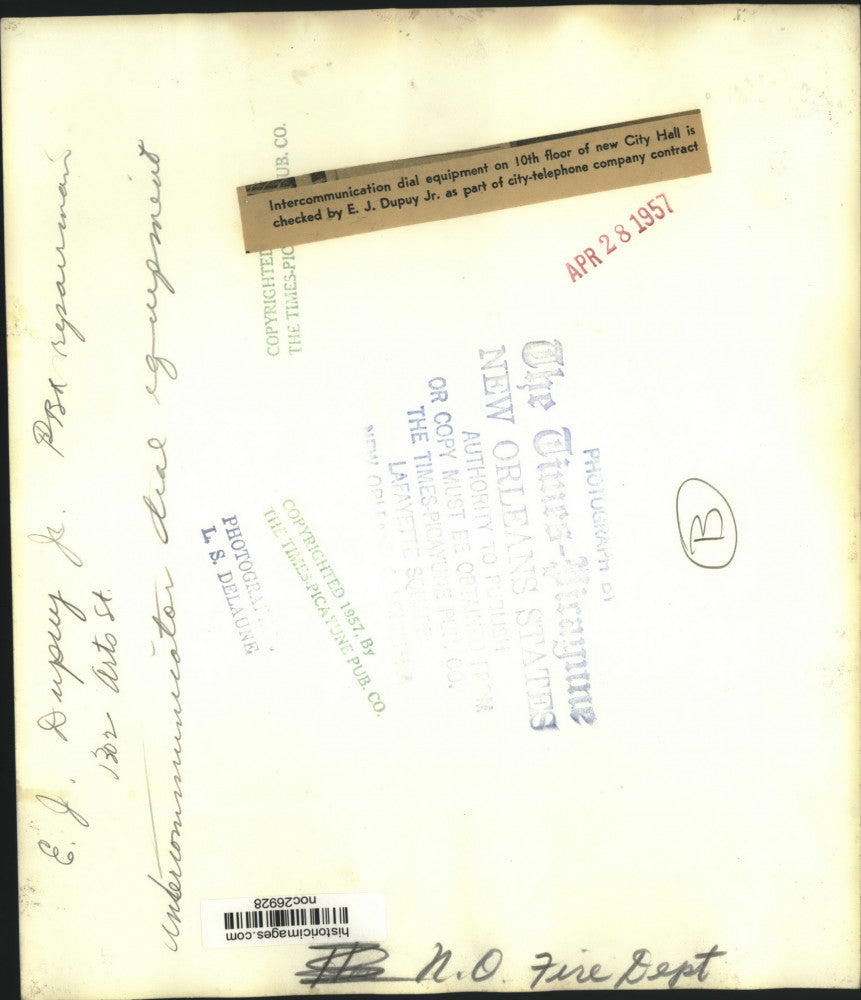 Intercommunication dial equipment on 10th floor of new City Hall is
checked by E. J. Dupuy Jr. as part of city-telephone company contract
APR 28 1957
E. J. Dupuy Jr. PBX repairman
1302 Arts St.
intercommunication dial equipment
COPYRIGHTED UB. CO.
THE TIMES-PIC
PHOTOGRA
L. S. DELAUNE
COPYRIGHTED 1957, By
THE TIMES-PICAYUNE PUB. CO.
PHOTOGRAPH BY
The Times-Picayune
NEW ORLEANS STATES
AUTHORITY TO
OR COPY MUST BE OBTAINED FROM
THE TIMES-PICAYUNE PUB. CO.
LAFAYETTE
NEW ORLEANS
B
historicimages.com
noc26928
N.O. Fire Dept